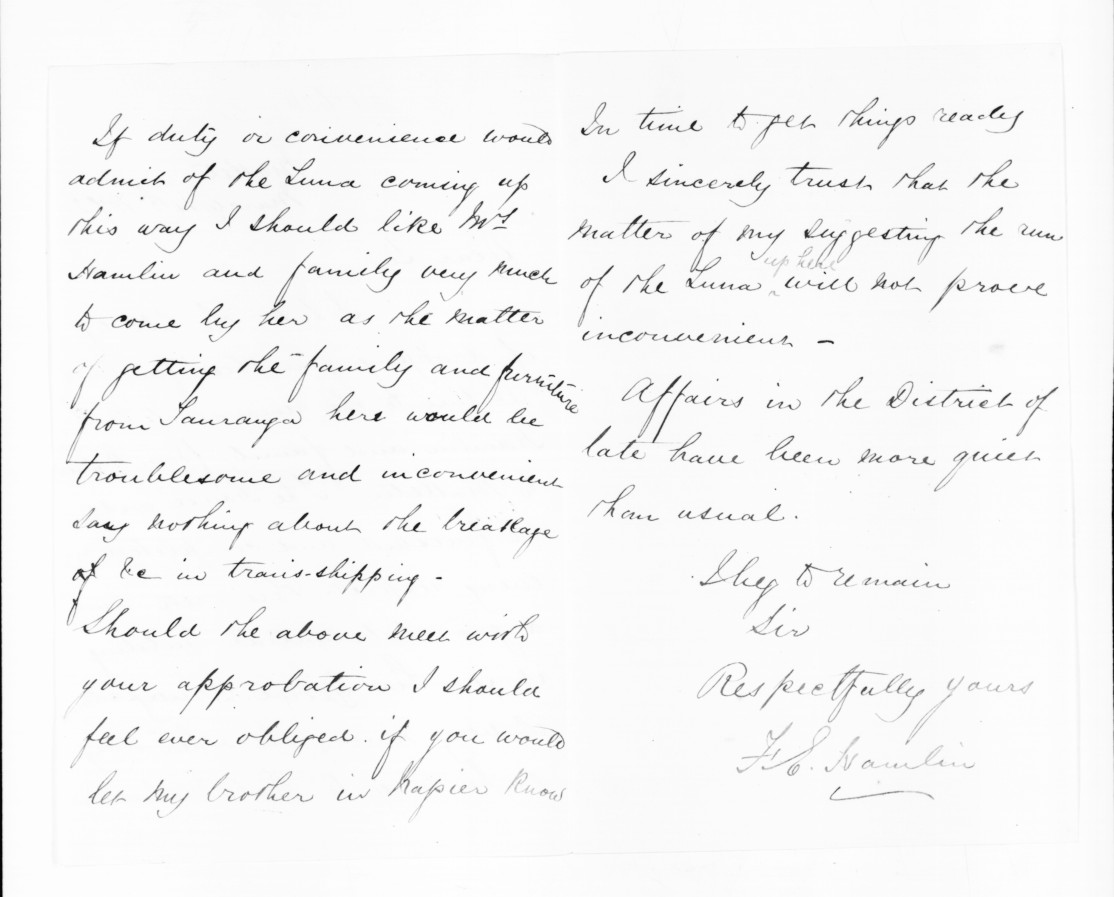 If duty or convenience would
admit of the Luna coming up
this way I should like Mrs
Hamlin and family very much
to come by her as the matter
of getting the family and furniture
from Tauranga here would be
troublesome and inconvenient
say nothing about the breakage
of &c in trans-shipping -
Should the above meet with
your approbation I should
feel ever obliged if you would
let my brother in Napier know
In time to get things ready
I sincerely trust that the
matter of my suggesting the run
up here
of the Luna will not prove
inconvenient -
Affairs in the District of
late have been more quiet
than usual.
I beg to remain
Sir
Respectfully yours
F. E. Hamlin